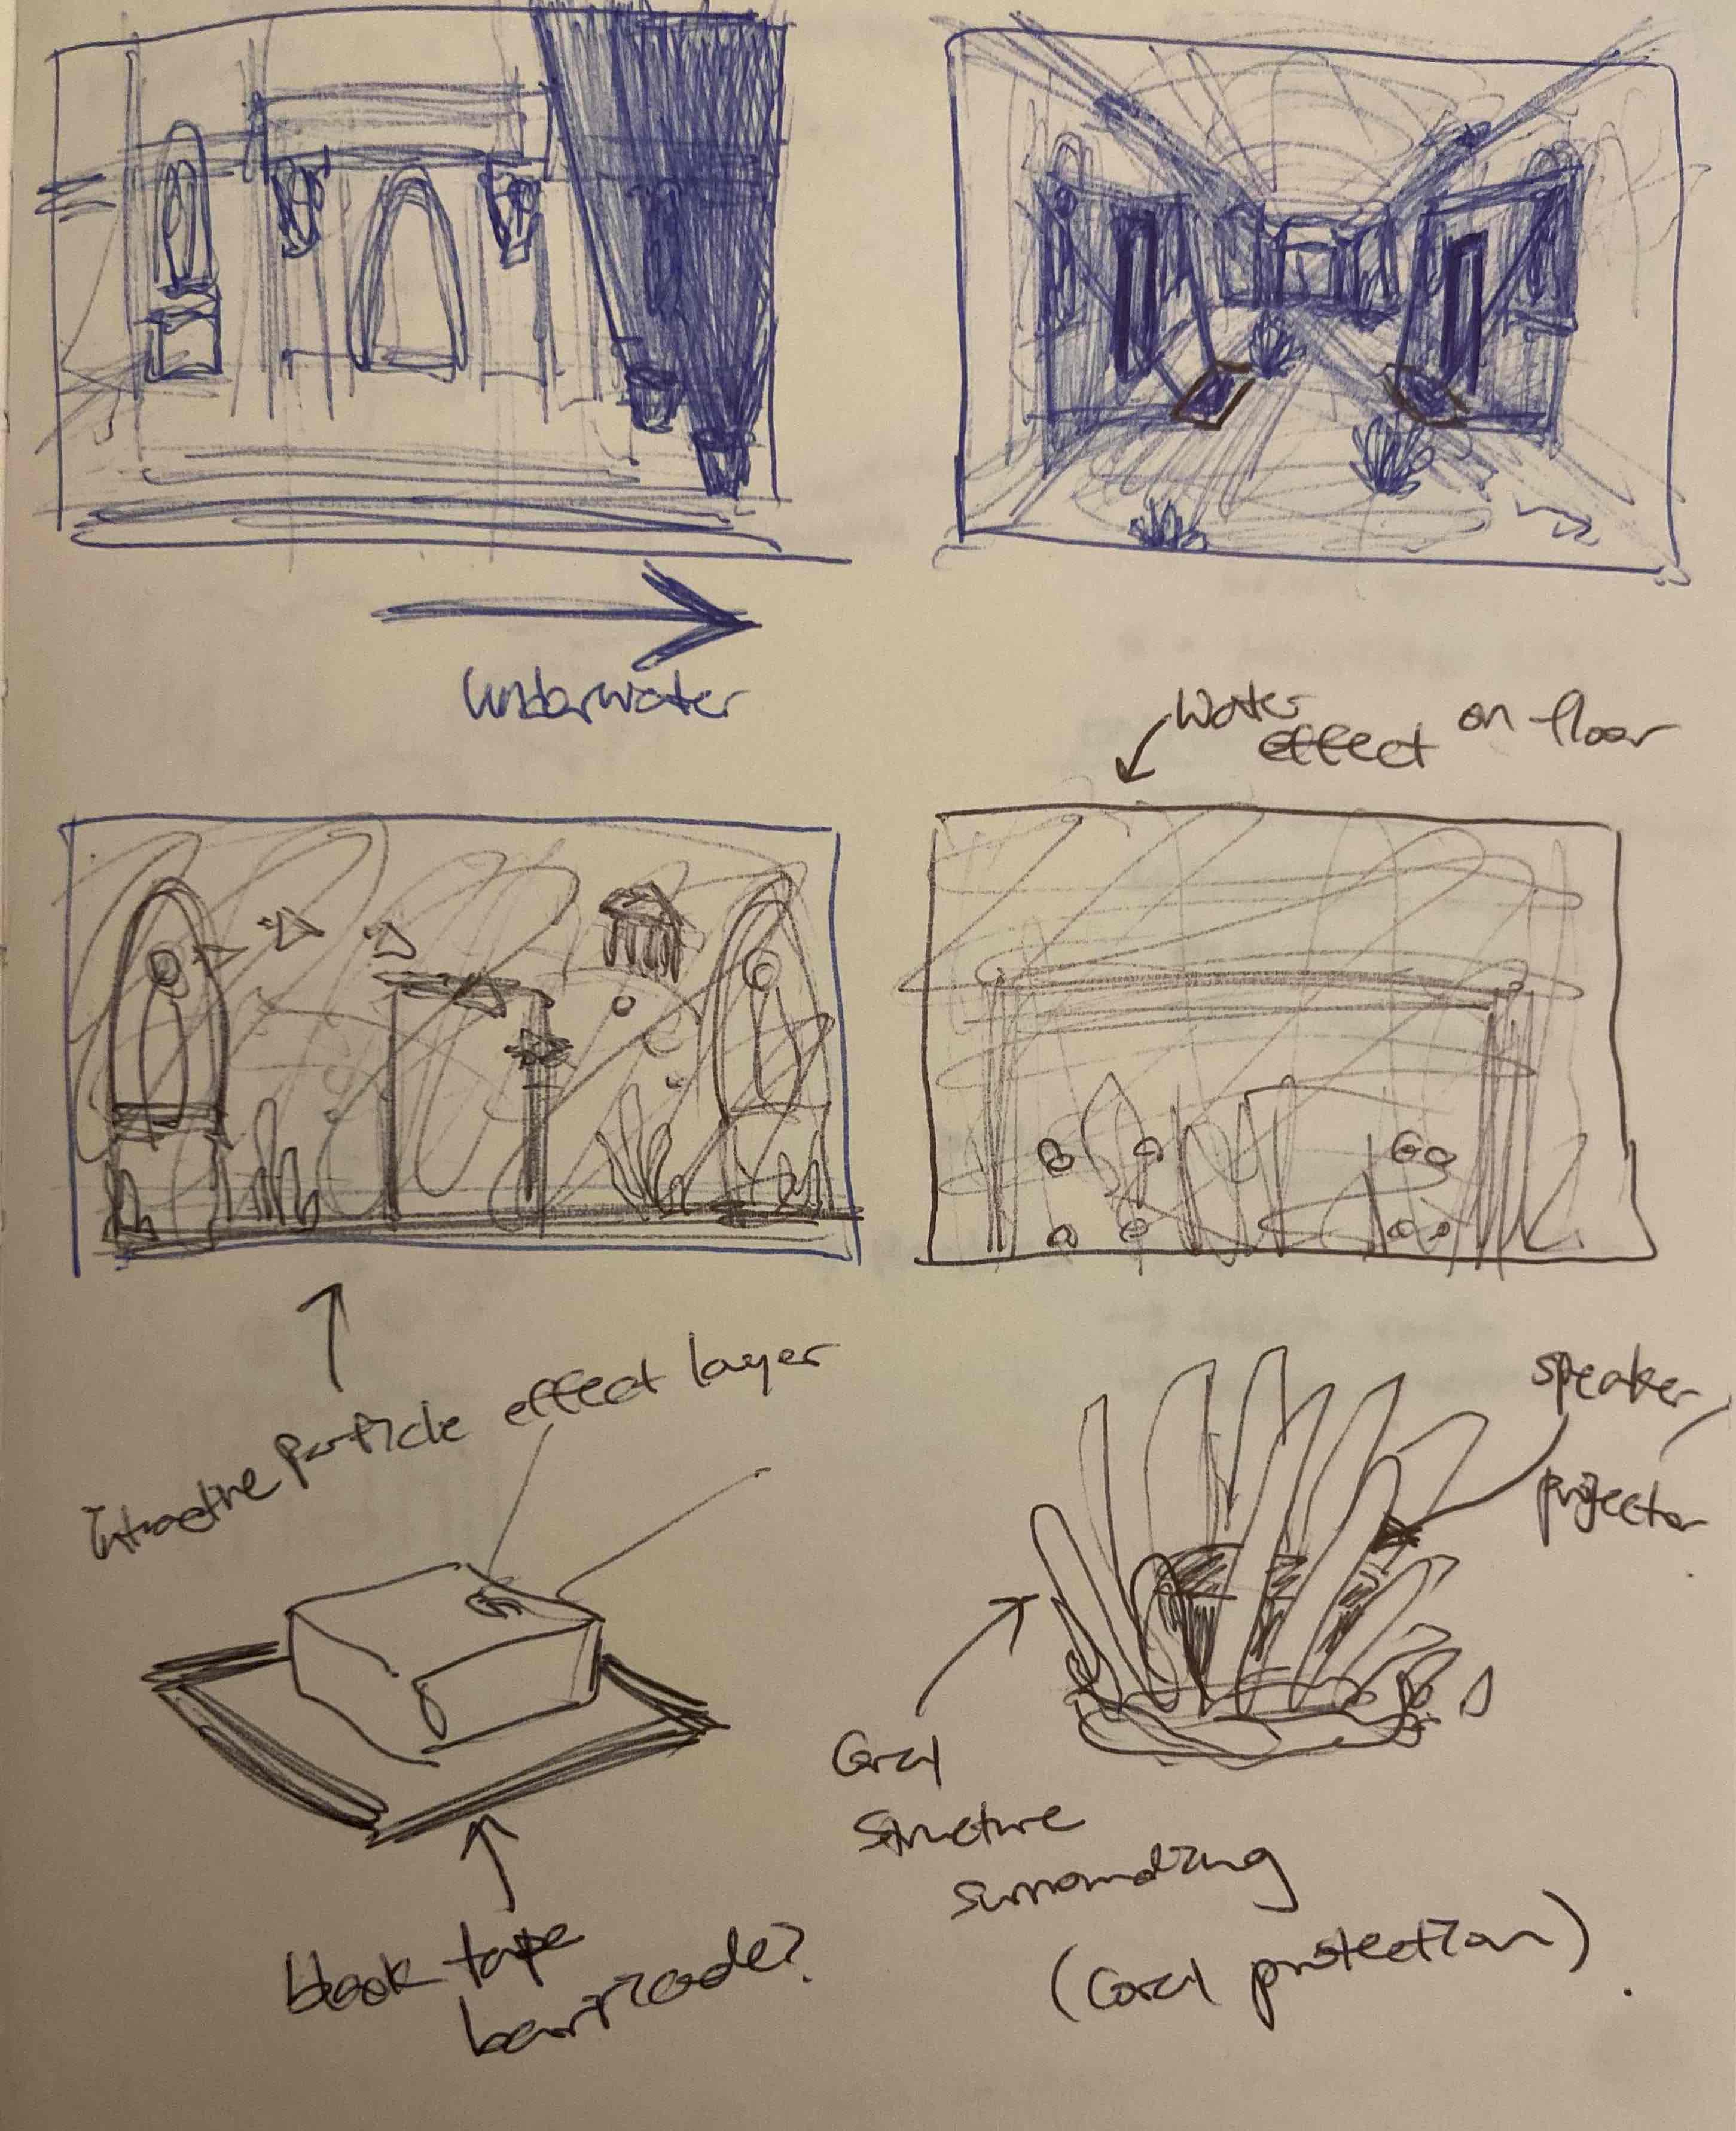 underwater
Water
effect on floor
Intractive particle effect layer
speaker/
projector
Coral
structure
surrounding
(Coral protection).
black tape
barricade?